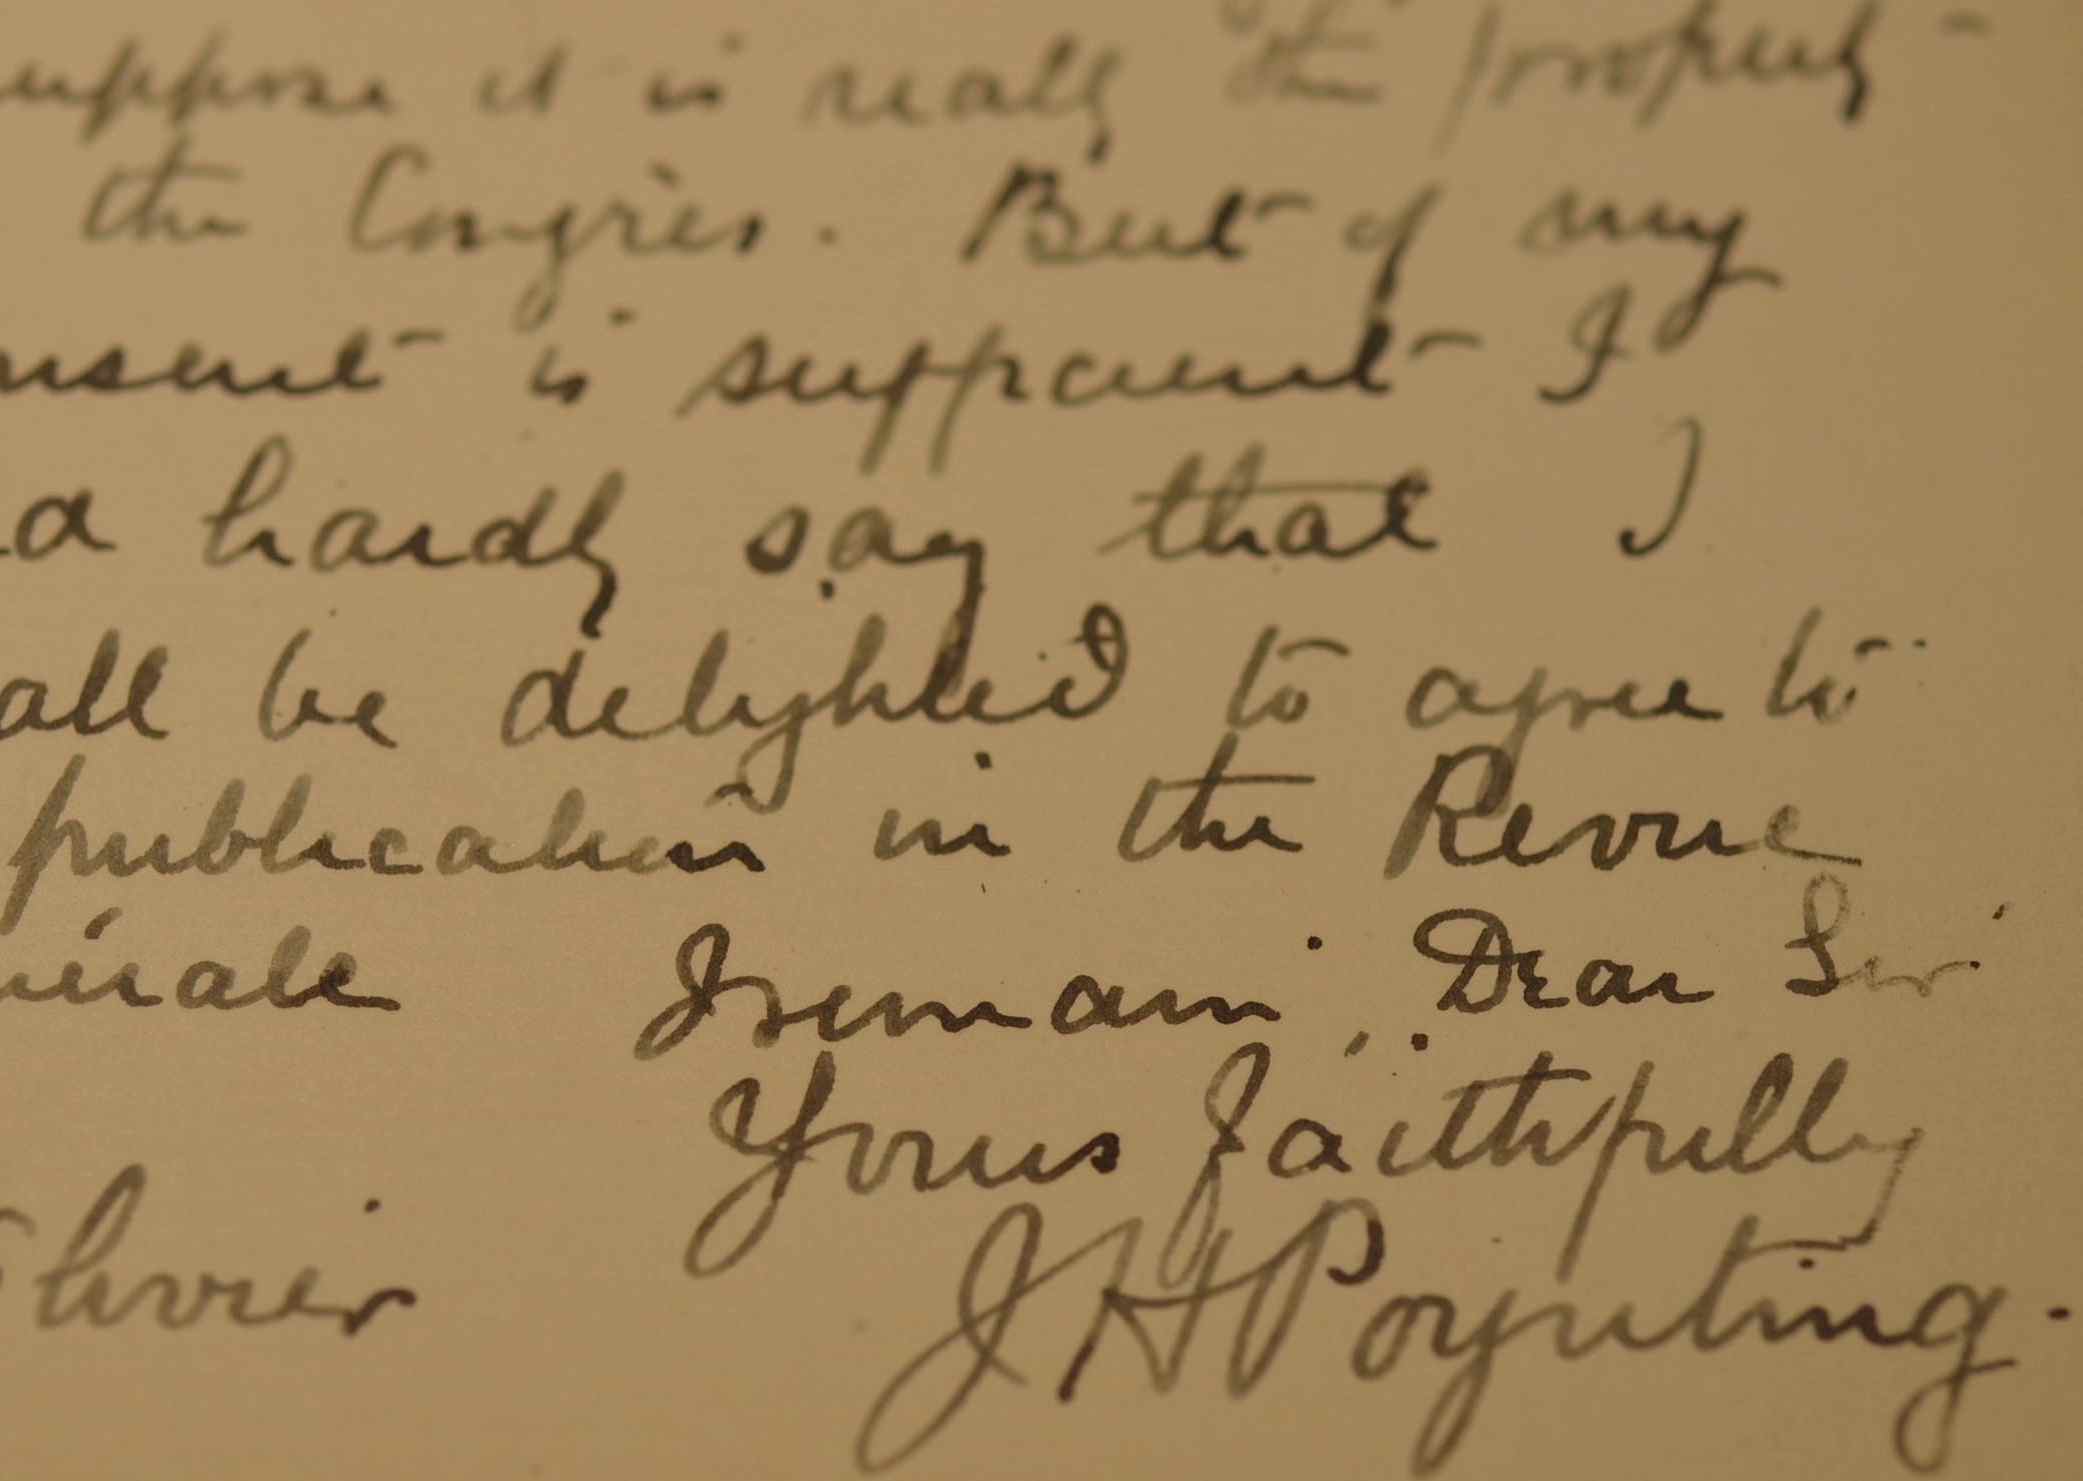 suppose it is really the property
the Congrès. But if my
consent is sufficient I
hardly say that I
shall be delighted to agree to
publication in the Revue
Générale I remain, Dear Sir
Yours faithfully
Olivier JHPoynting.